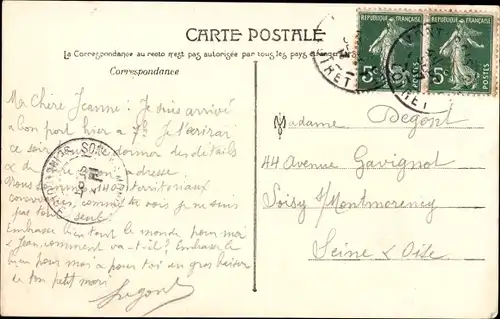 CARTE POSTALE
La Correspondance au recto n'est pas autorisée par tous les pays
Correspondance
REPUBLIQUE FRANÇAISE
REPUBLIQUE FRANÇAISE
5c
5c
Ma Chère Jeanne : Je suis arrivé
a bon port hier a 7h. Je t'écrirai
ce soir donner des details
adresse.
Nous sommes 1400 territoriaux
comme tu vois je ne suis
pas tout seul.
Embrasse bien tout le monde pour moi
& Jean, comment va-t-il? Embrasse le
bien pour moi & pour toi un gros baiser
de ton petit mari
Degont
Madame Degont
44 Avenue Gavignot
Soisy s/Montmorency
Seine & Oise